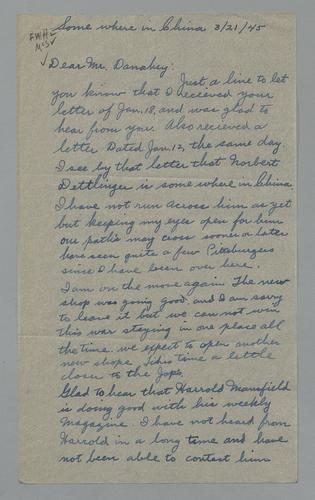 Some where in China 3/21/45
Dear Mr. Danahey:
Just a line to let
you know that I recieved your
letter of Jan. 18, and was glad to
hear from you. Also recieved a
letter Dated Jan. 12, the same day.
I see by that letter that Norbert
Dettlinger is some where in China
I have not run across him as yet
but keeping my eyes open for him
our paths may cross sooner or later
have seen quite a few Pittsburgers
since I have been over here.
I am on the move again The new
shop was going good, and I am sorry
to leave it but we can not win
this war staying in one place all
the time. we expect to open another
new shope this time a little
closer to the Japs.
Glad to hear that Harrold Mansfield
is doing good with his weekly
Magazine. I have not heard from
Harrold in a long time and have
not been able to contact him